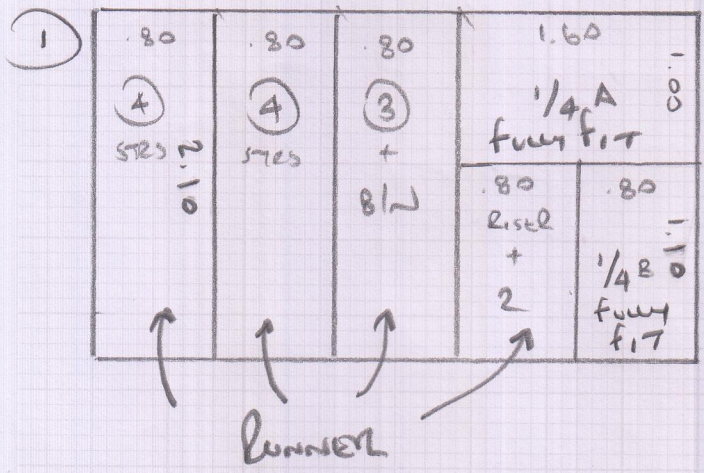 1
.80
4
STRS
2.10
.80
4
STRS
.80
3
+
B/N
1.60
1.00
1/4 A
fully fit
.80
RISER
+
2
.80
1.10
1/4 B
fully
fit
RUNNER